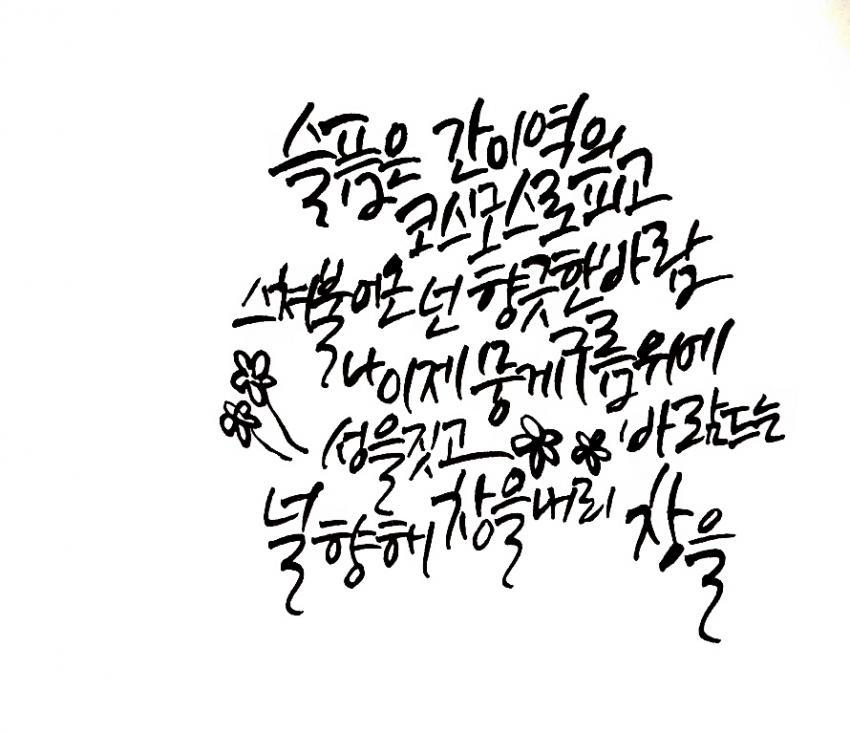 슬픔은 간이역의
코스모스로 피고
스쳐 불어온 넌 향긋한 바람
나 이제 뭉게구름 위에
성을 짓고 바람드는
널 향해 창을 내리 창을